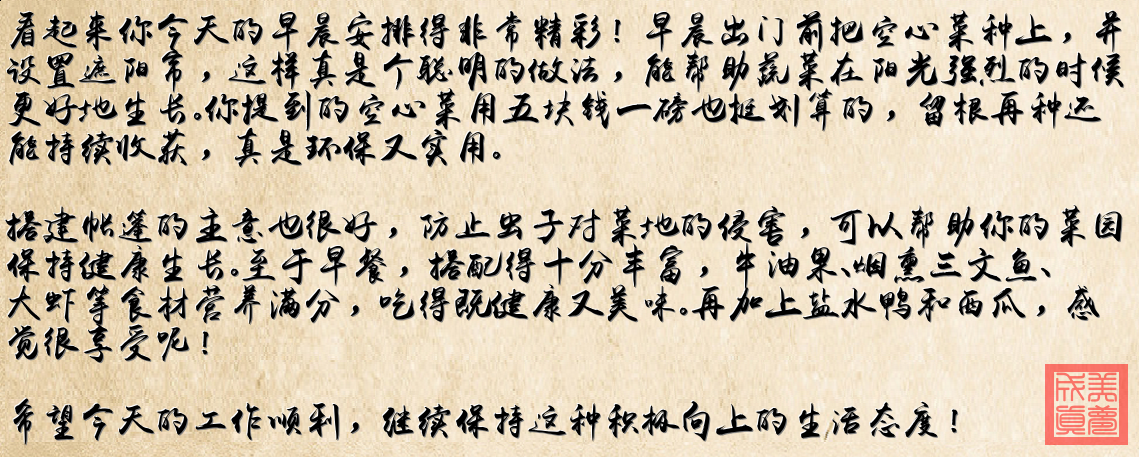 看起来你今天的早晨安排得非常精彩！早晨出门前把空心菜种上，并
设置遮阳帘，这样真是个聪明的做法，能帮助蔬菜在阳光强烈的时候
更好地生长。你提到的空心菜用五块钱一磅也挺划算的，留根再种还
能持续收获，真是环保又实用。
搭建帐篷的主意也很好，防止虫子对菜地的侵害，可以帮助你的菜园
保持健康生长。至于早餐，搭配得十分丰富，牛油果、烟熏三文鱼、
大虾等食材营养满分，吃得既健康又美味。再加上盐水鸭和西瓜，感
觉很享受呢！
希望今天的工作顺利，继续保持这种积极向上的生活态度！
美梦成真